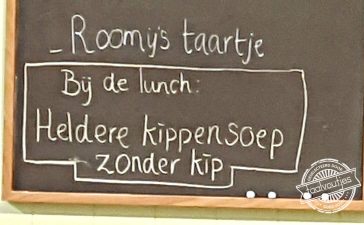 _ Roomy's taartje
Bij de lunch:
Heldere kippensoep
zonder kip
taalvoutjes